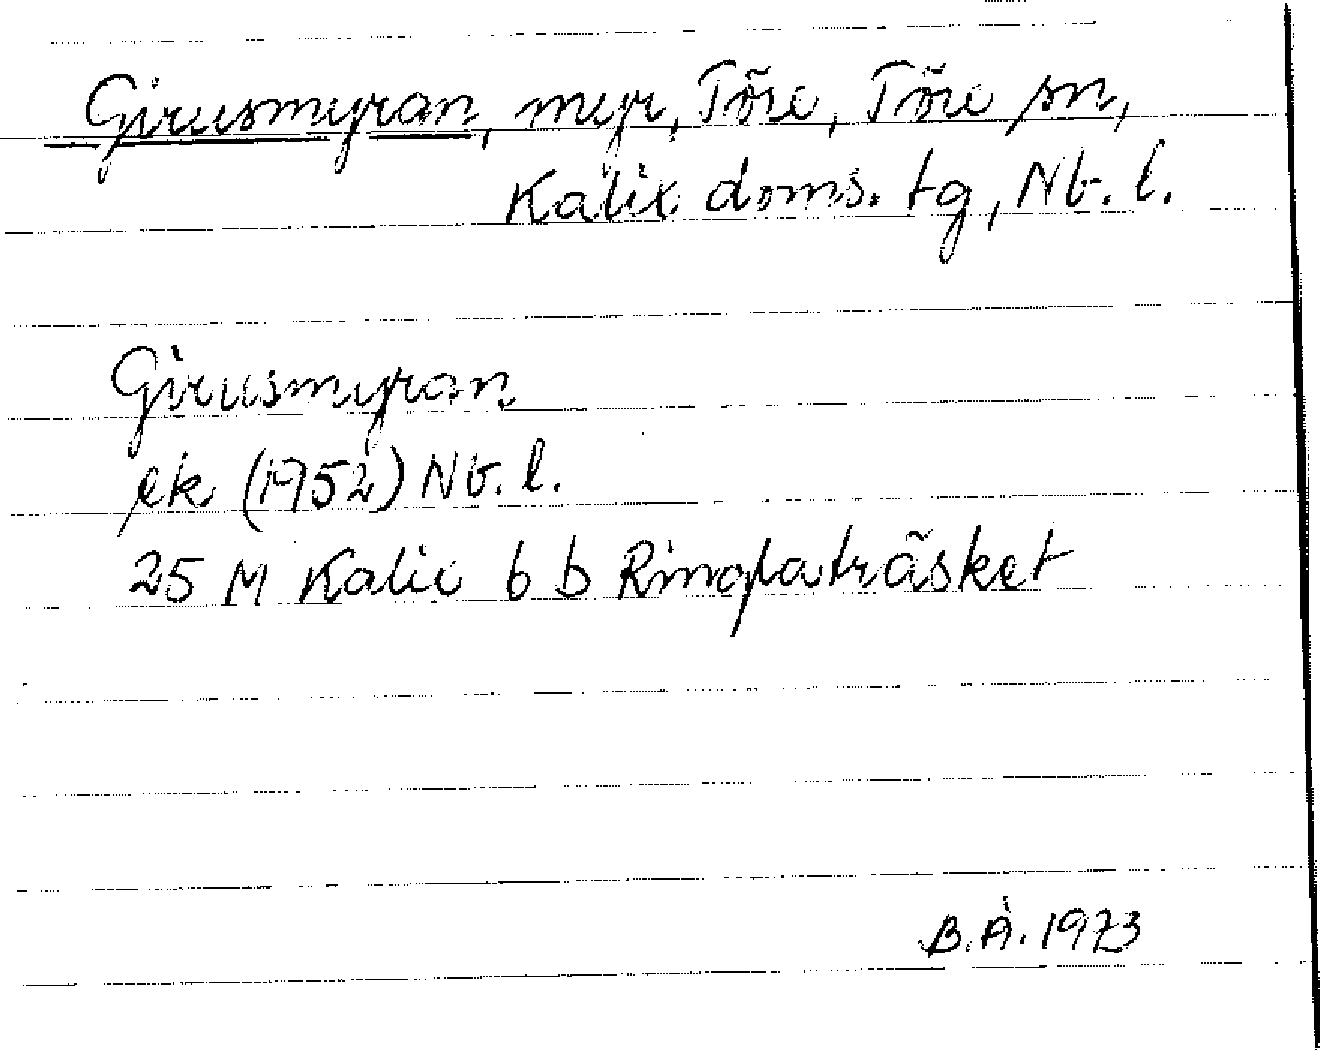 Girusmyran, myr, Töre, Töre sn,
Kalix doms. tg, Nb. l.
Girusmyran
ek (1952) Nb. l.
25 M Kalix 6 b Ringlaträsket
B.Å. 1973